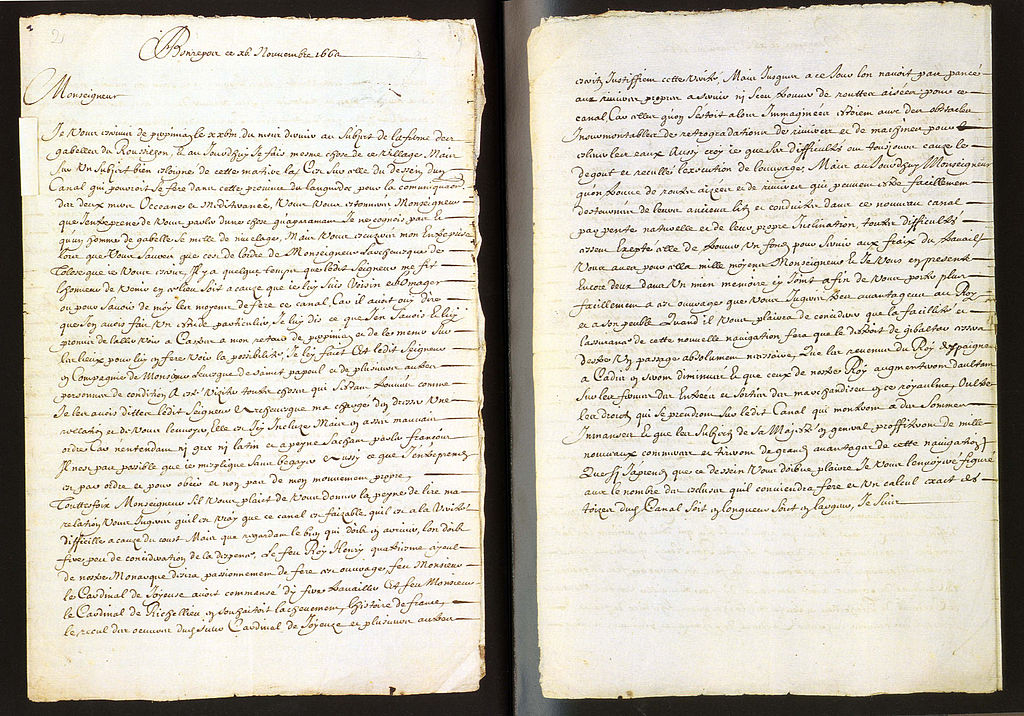 2
Bonrepos ce xb Novembre 1662
Monseigneur
Je vous escrivis de perpinian le xxbm du mois dernier au subject de la ferme des
gabelles du Roussillon, Et au Jourdhuy Je fais mesme chose de ce village, Mais
sur un subject bien esloigné de cette matiere la C'est sur celle du dessein d'un
Canal qui pourroit se fere dans cette province du languedoc pour la communiquaon
des deux mers Occeane et Mediterranée, Vous Vous estonneres Monseigneur
que J'entreprene de Vous parler d'une chose qu'aparamant Je ne cognois pas Et
qu'un homme de gabelle se mesle de nivelage, Mais Vous excuseres mon Entreprise
lors que Vous Saures que c'est de l'ordre de Monseigneur L'archevesque de
Tolose que ie Vous escris, Il y a quelque temps que ledit Seigneur me fit
l'honneur de Venir en ce lieu Soit a cause que ie luy suis Voisin et omager
ou pour Savoir de moy les moyens de fere ce Canal, Car il avoit ouy dire
que J'en avois fait Un estude particulier, Je luy dis ce que J'en savois Et luy
promis de l'aller Voir a Castres a mon retour de perpinian et de le mener sur
les lieux pour luy en fere Voir la possibilité, Je l'ay fait Et ledit Seigneur
en Compagnie de Monsieur l'evesque de Saint papoul et de plusieurs autres
personnes de condition A esté Visiter toutes choses qui s'estant trouvees comme
Je les avois dittes ledit Seigneur Archevesque m'a chargé d'en dresser Une
relation et de Vous l'envoyer, Elle est Icy Incluse Mais en asses mauvais
ordre Car n'entendant ny grec ny latin et a peyne Sachant parler françois
Il n'est pas possible que ie m'explique sans begayer Aussy ce que J'entreprens
est par ordre et pour obeir et non pas de mon mouvement propre,
Touttesfois Monseigneur s'il Vous plaist de Vous donner la peyne de lire ma
relation Vous Jugeres qu'il est Vray que ce canal est faizable, qu'il est a la Verité
difficille a cauze du coust Mais que regardant le bien qui doibt en arriver, l'on doibt
fere peu de concideration de la dispense, Le feu Roy Henry quatriesme ayeul
de nostre Monarque desira passionnement de fere cest ouvrage, feu Monsieur
le Cardinal de Joyeuse avoit commansé d'y fere travailler Et feu Monsieur
le Cardinal de Richellieu en souhaittoit l'achevement, l'histoire de france,
le recul des oeuvres dud. sieur Cardinal de Joyeuze et plusieurs autres
escrits Justiffient cette Verité, Mais Jusques a ce Jour l'on n'avoit pas pancé
aux rivieres propres a servir ny sceu trouver de routtes aisées pour ce
canal Car celles qu'on s'estoit alors Immaginées estoient avec des obstacles
Insurmontables de retrogradations de rivieres et de machines pour
eslever les eaux Aussy croy ie que ses difficultés ont tousjours causé le
degout et reculé l'execution de l'ouvrage, Mais au Jourdhuy Monseigneur
qu'on trouve de routes aizees et de rivieres qui peuvent estre facillement
destournées de leurs anciens lits et conduittes dans ce nouveau canal
par pente naturelle et de leur propre Inclination toutes difficultés
cessent Excepté celle de trouver Un fonds pour servir aux fraix du travail
Vous aves pour cella mille moyens Monseigneur Et Je Vous en presente
Encore deux dans Un mien memoire cy Joint afin de Vous porter plus
facillement a cest ouvrage que Vous Jugeres tres avantageux au Roy
et a son peuple Quand il Vous plairra de conciderer que la facillité et
l'assurance de cette nouvelle navigation fera que le destroit de gibaltar cessera
d'estre Un passage absolument necessaire, Que les revenus du Roy d'Espaigne
a Cadis en seront diminués Et que ceux de nostre Roy augmenteront d'aultant
sur les fermes des Entrees et Sorties des marchandises en ce royaulme, Oultre
les droits qui se prendront sur ledit Canal qui monteront a des Sommes
Immanses Et que les Subjects de Sa Majesté en general proffitteront de mille
nouveaux commerces et tireront de grands avantages de cette navigation,
Que sy J'aprens que ce dessein Vous doibve plaire Je Vous l'envoyeré figuré
avec le nombre des escluses qu'il conviendra fere et Un calcul exact des
toizes dud. Canal Soit en longueur Soit en largeur, Je Suis